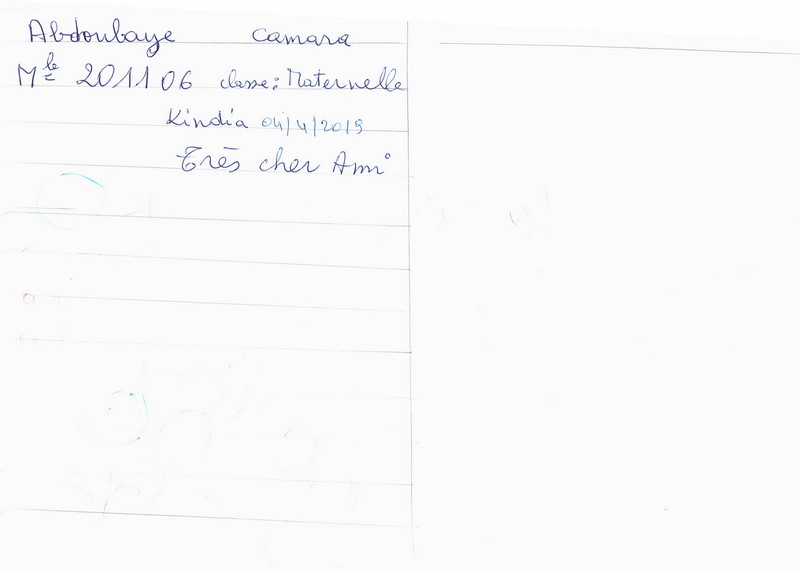 Abdoulaye Camara
Mle 201106 classe: Maternelle
Kindia 04/4/2019
Très cher Ami